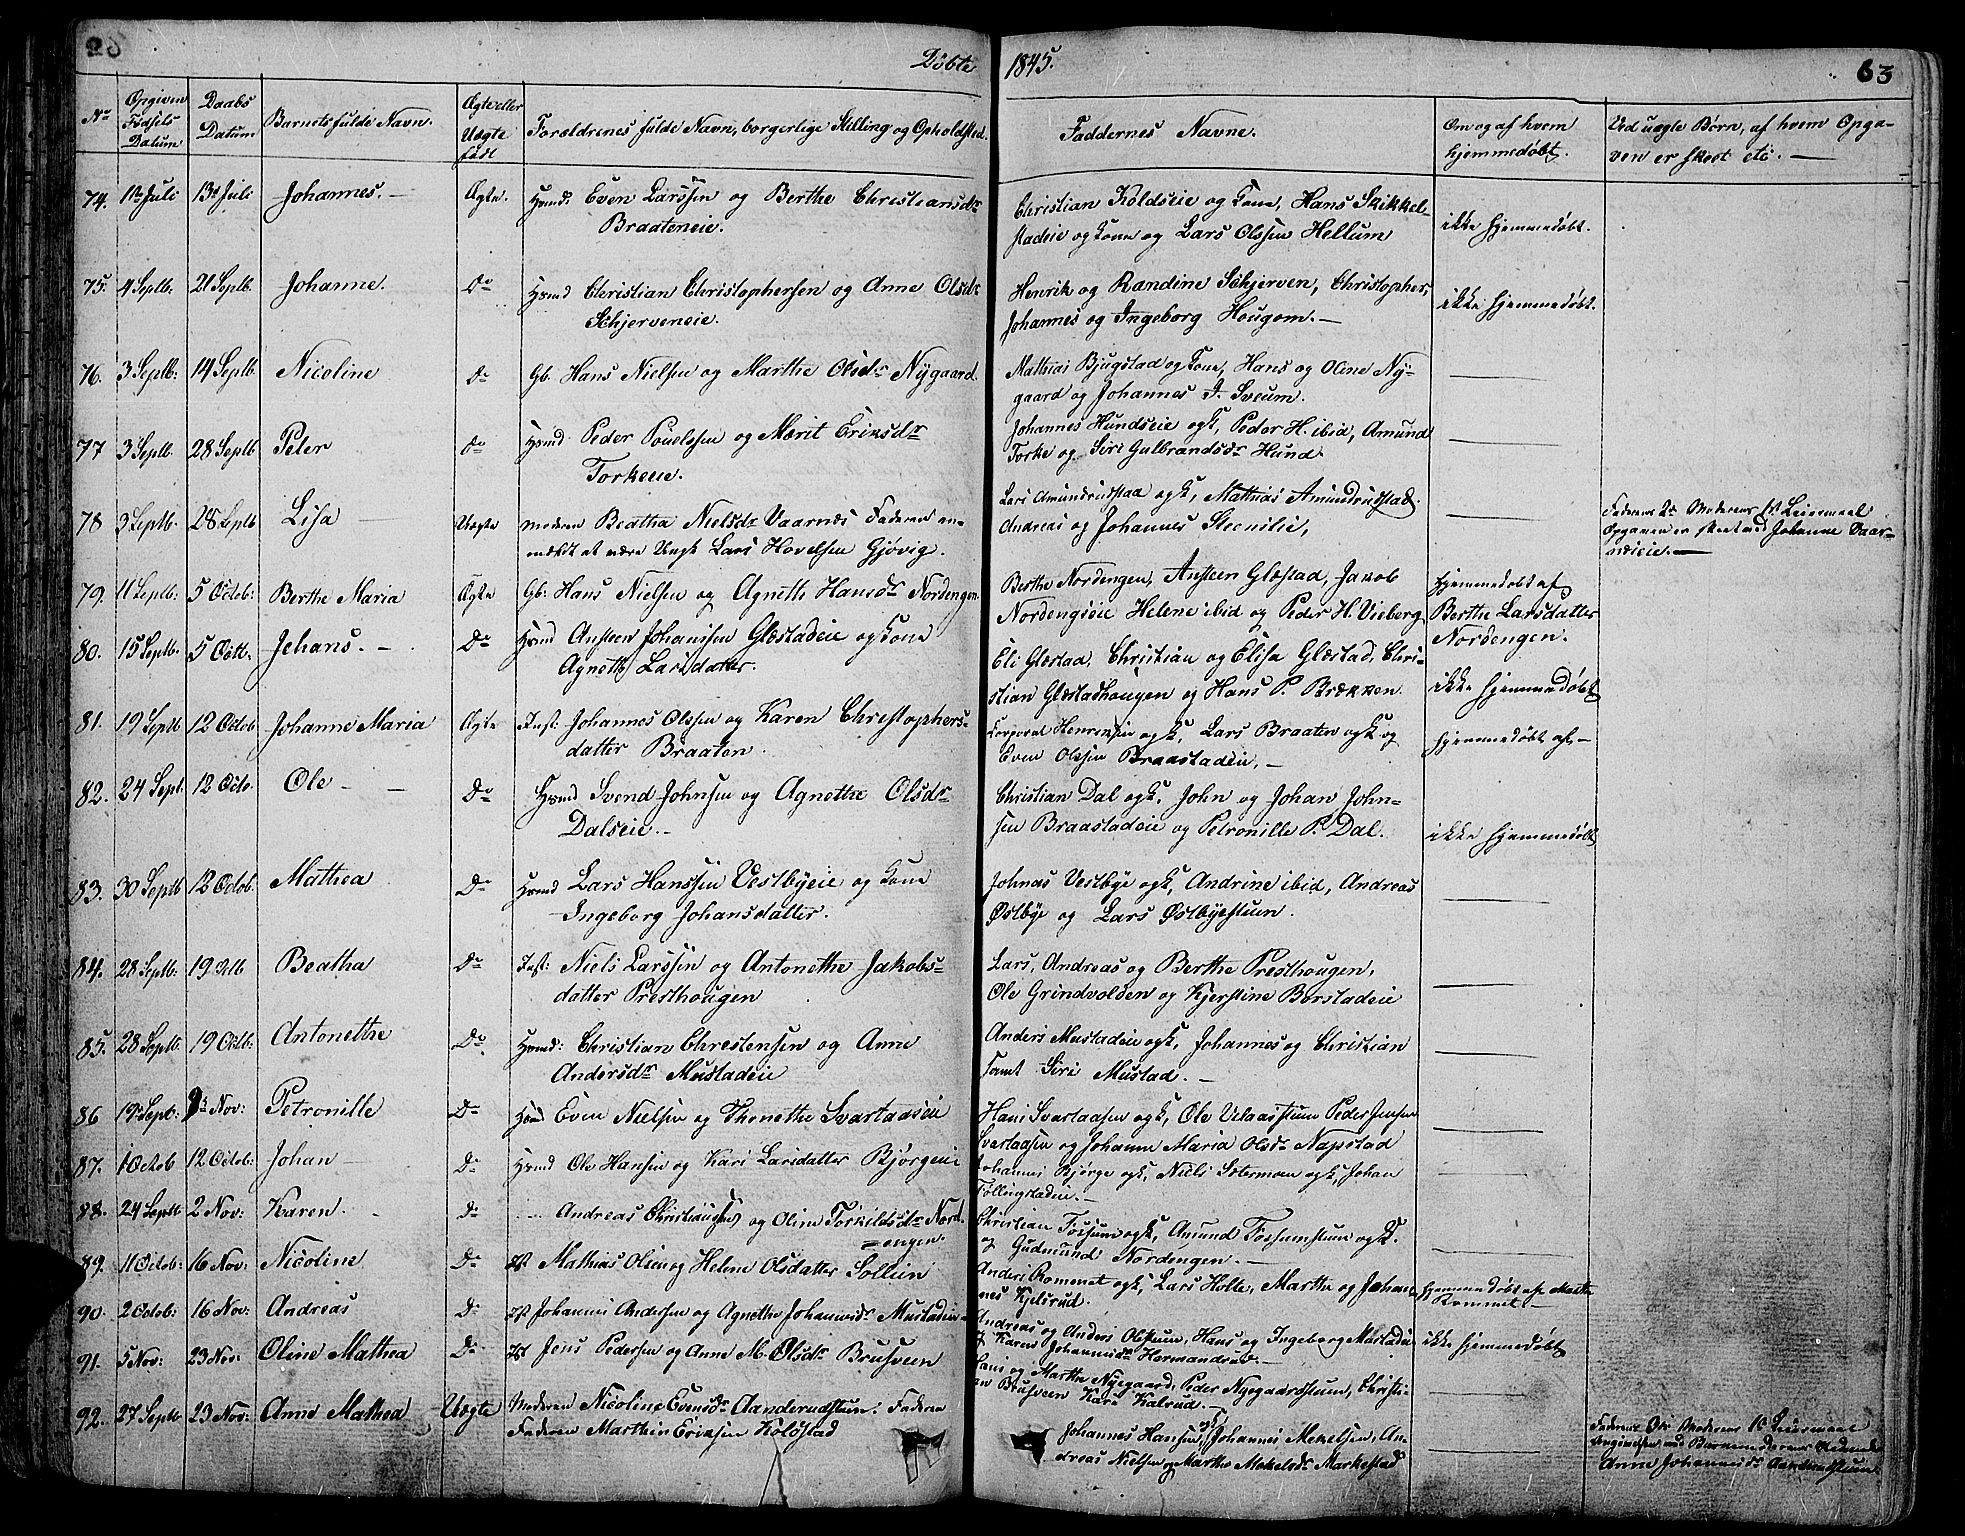 Døbte 1845. 63
No Opgiven Fødsels Datum Daabs Datum Barnets fulde Navn. Ægte eller Uægte født Forældrenes fulde Navn, borgerlige Stilling og Opholdsted. Faddernes Navne. Om og af hvem hjemmedøbt. Ved uægte Børn, af hvem Opgaven er skeet etc. —
74. 1ste Juli 13de Juli Johannes. — Ægte. Hsmd: Even Larssen og Berthe Christiansdr
Braateneie.
Christian Koldseie og Kone, Hans Skikkel-
stadeie og Kone og Lars Olssen Hellum
ikke hjemmedøbt.
75. 4 Septb: 21 Septb. Johanne. Do Hsmd Christian Christophersen og Anne Olsdr
Schjerveneie.
Henrik og Randine Schjerven, Christopher,
Johannes og Ingeborg Hougom. —
ikke hjemmedøbt.
76. 3 Septb: 14 Septb. Nicoline Do Gb. Hans Nielsen og Marthe Olsdr Nygaard.
Mathias Bjugstad og Kone, Hans og Oline Ny-
gaard og Johannes J. Sveum.
77 3 Septb. 28 Septb Peter do Hsmd: Peder Pouelssen og Marit Eriksdr
Torkeeie.
Johannes Hundseie ogk, Peder H. ibid, Amund
Torke og Siri Gulbrandsdr Hund
78 3 Septb. 28 Septb Lisa — Uægte moderen Beatha Nielsdr Vaarnæs Faderen an-
meldt at være Ungk Lars Hovelsen Gjøvig.
Lars Amundrudstaa ogk, Mathias Amundrudstad.
Andreas og Johannes Steenslie,
Faderens 2d Moderens 1st Leiermaal
Opgaven er skeet ved Johanne Vaar-
næseie. —
79. 11 Septb: 5 Octob: Berthe Maria Ægte Gb: Hans Nielsen og Agnethe Hansdr Nordengen.
Berthe Nordengen, Ansteen Glæstad, Jakob
Nordengseie Helene ibid og Peder H. Vieberg
Hjemmedøbt af
Berthe Larsdatter
Nordengen.
80. 15 Septb. 5 Octb. Jehans. — Do Hsmd Ansteen Johanssen Glæstadeie og Kone
Agnethe Larsdatter.
Eli Glæstad, Christian og Elisa Glæstad, Chri-
stian Glæstadhougen og Hans P. Brækken.
ikke hjemmedøbt
81. 19 Septb 12 Octob Johanne Maria Ægte Inst: Johannes Olssen og Karen Christophers-
datter Braaten.
Corporal Henriksen ogk, Lars Braaten ogk og
Even Olssen Braastadeie, —
hjemmedøbt af, —
82. 24 Sept. 12 Octo. Ole — — Do Hsmd Svend Johnsen og Agnethe Olsdr
Dalseie. —
Christian Dal ogk, John og Johan John-
sen Braastadeie og Petronille P. Dal.
ikke hjemmedøbt
83. 30 Septb 12 Octob. Mathea Do Hsmd Lars Hanssen Vestbyeie og Kone
Ingeborg Johansdatter.
Johnas Vestbye ogk, Andrine ibid, Andreas
Østbye og Lars Østbyestuen.
84. 28 Septb: 19 Octb Beatha Do Inst: Niels Larssen og Antonethe Jakobs-
datter Presthougen
Lars, Andreas og Berthe Presthougen,
Ole Grindvolden og Kjerstine Berstadeie
85. 28 Septb 19 Octb. Antonethe Do Hsmd: Christian Christensen og Anne
Andersdr Mustadeie
Anders Mustadeie ogk, Johannes og Christian
samt Siri Mustad. —
86 19 Sept: 2 Nov: Petronille Do Hsmd Even Nielsen og Thonethe Svartaaseie
Hans Svartaasen ogk, Ole Vlaasstuen Peder Jensen
Svartaasen og Johanne Maria Olsdr Napstad
87. 1 Octob 12 Octob: Johan — Do Hsmd Ole Hansen og Kari Larsdatter Bjørgeeie
Johannes Bjørge ogk, Niels Sotermoen ogk, Johan
Føllingstadeie. —
88. 24 Septb 2 Nov: Karen. Do — Andreas Christiansen og Oline Torkildsdr Nord-
engen.
Christian Fossum ogk, Amund Fossumstuen ogk.
og Gudmund Nordengen. —
89. 11 Octob: 16 Nov: Nicoline Do Hsf Mathias Olsen og Helene Olsdatter Sollien
Anders Rommet ogk, Lars Holte, Marthe og Johan-
nes Kjelsrud.
hjemmedøbt af Marthe
Rommet —
90. 2 Octob: 16 Nov: Andreas Do Hsf Johannes Andersen og Agnethe Johannesdr Mustadeie
Andreas og Anders Olestuen, Hans og Ingeborg Mustadeie
og Karen Johannesdr Hermandrud. —
ikke hjemmedøbt
91. 5 Nov: 23 Nov: Oline Mathea Do Hsf Jens Pedersen og Anne M. Olsdr Brusveen
Hans og Marthe Nyegaard, Peder Nyegaardstuen, Christi-
an Brusveen Kari Kalrud. —
92. 27 Septb 23 Nov: Anne Mathea Uægte Moderen Nicoline Evensdr Aanderudstuen: Faderen
Faderen Marthin Eriksen Kolostad
Johannes Hansen ogk, Johannes Mekelsen, An-
dreas Nielsen og Marthe Mekelsdr Markestad
Faderens 2de Moderens 1ste Leiermaal
Angivelsen ved Barnemoderens Moder
Anne Johannesdr Aanderudstuen.